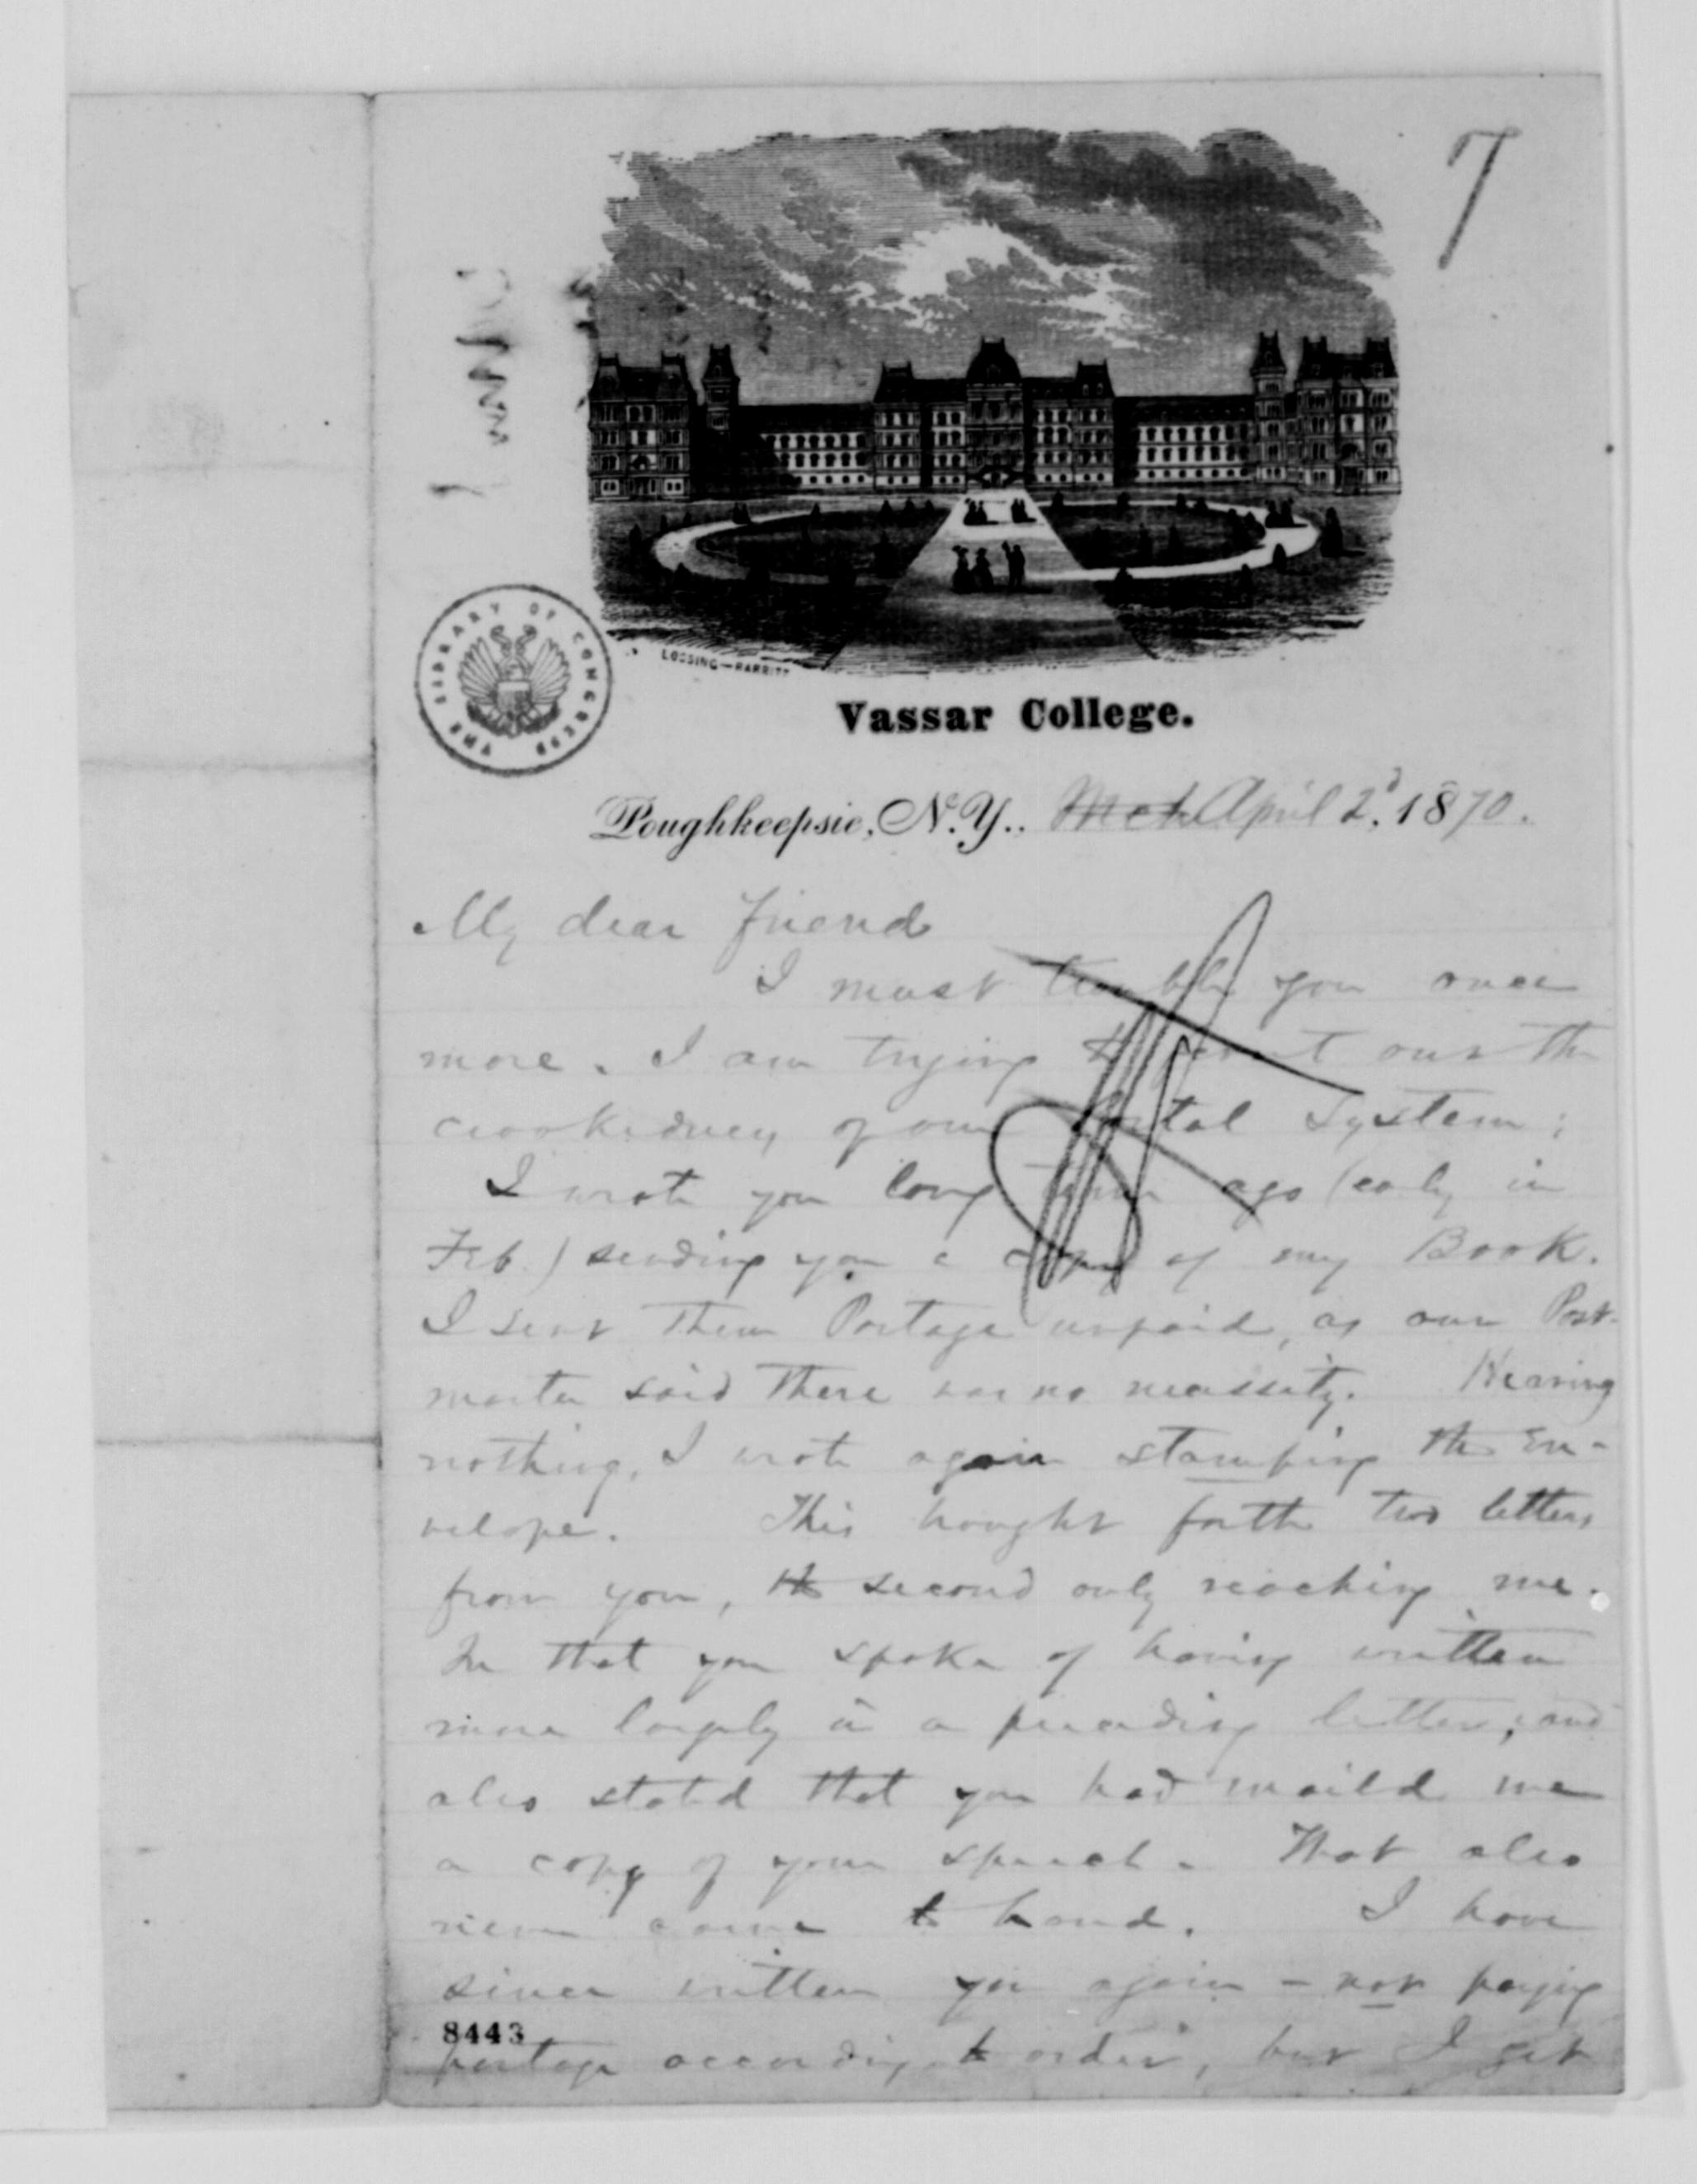 7
LOSSING—BARRITT
THE LIBRARY OF CONGRESS
Vassar College.
Poughkeepsie, N.Y., Mch April 2d, 1870.
My dear friend
I must trouble you once
more. I am trying to out the
crookedness of our Postal System;
I wrote you long time ago (early in
Feb.) sending you a copy of my Book.
I sent them Postage unpaid, as our Post-
master said there was no necessity. Hearing
nothing, I wrote again stamping the En-
velope. This brought forth two letters
from you, the second only reaching me.
In that you spoke of having written
more largely in a preceding letter, and
also stated that you had maild me
a copy of your speech. That also
never came to hand. I have
since written you again – not paying
8443
postage according to order, but I get